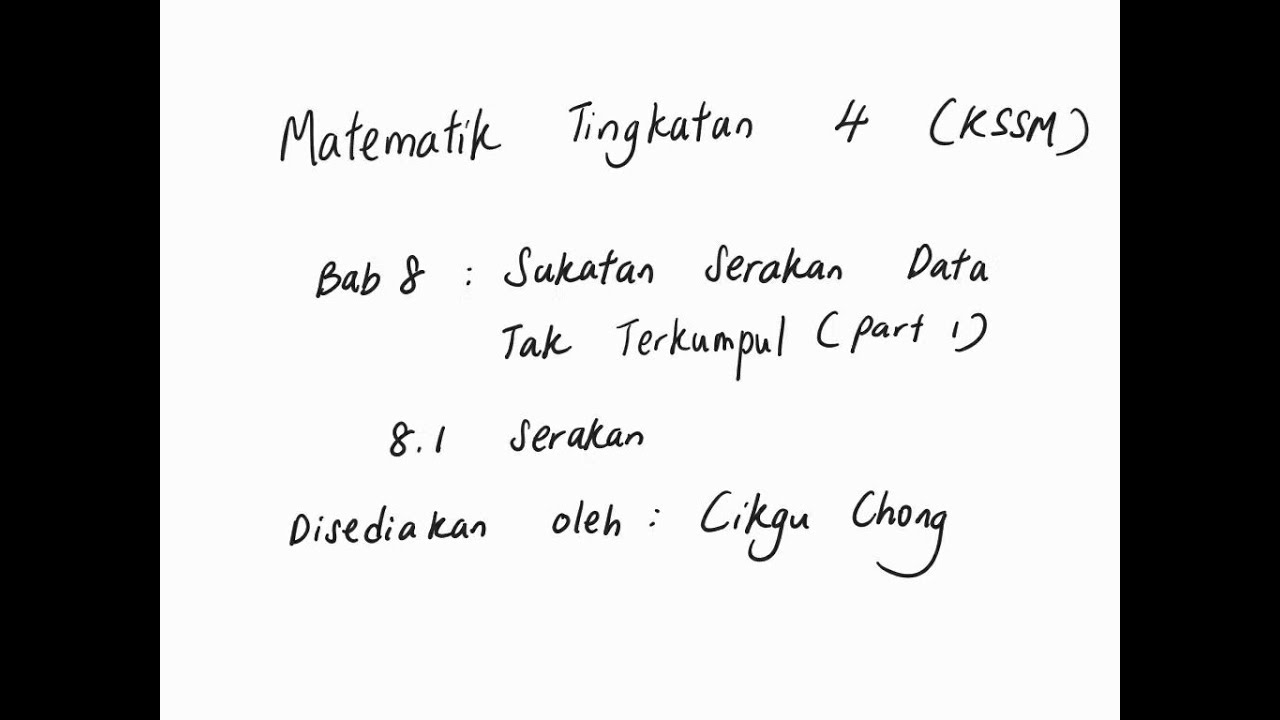 Matematik Tingkatan 4 (KSSM)
Bab 8 : Sukatan Serakan Data
Tak Terkumpul (part 1)
8.1 Serakan
Disediakan oleh : Cikgu Chong